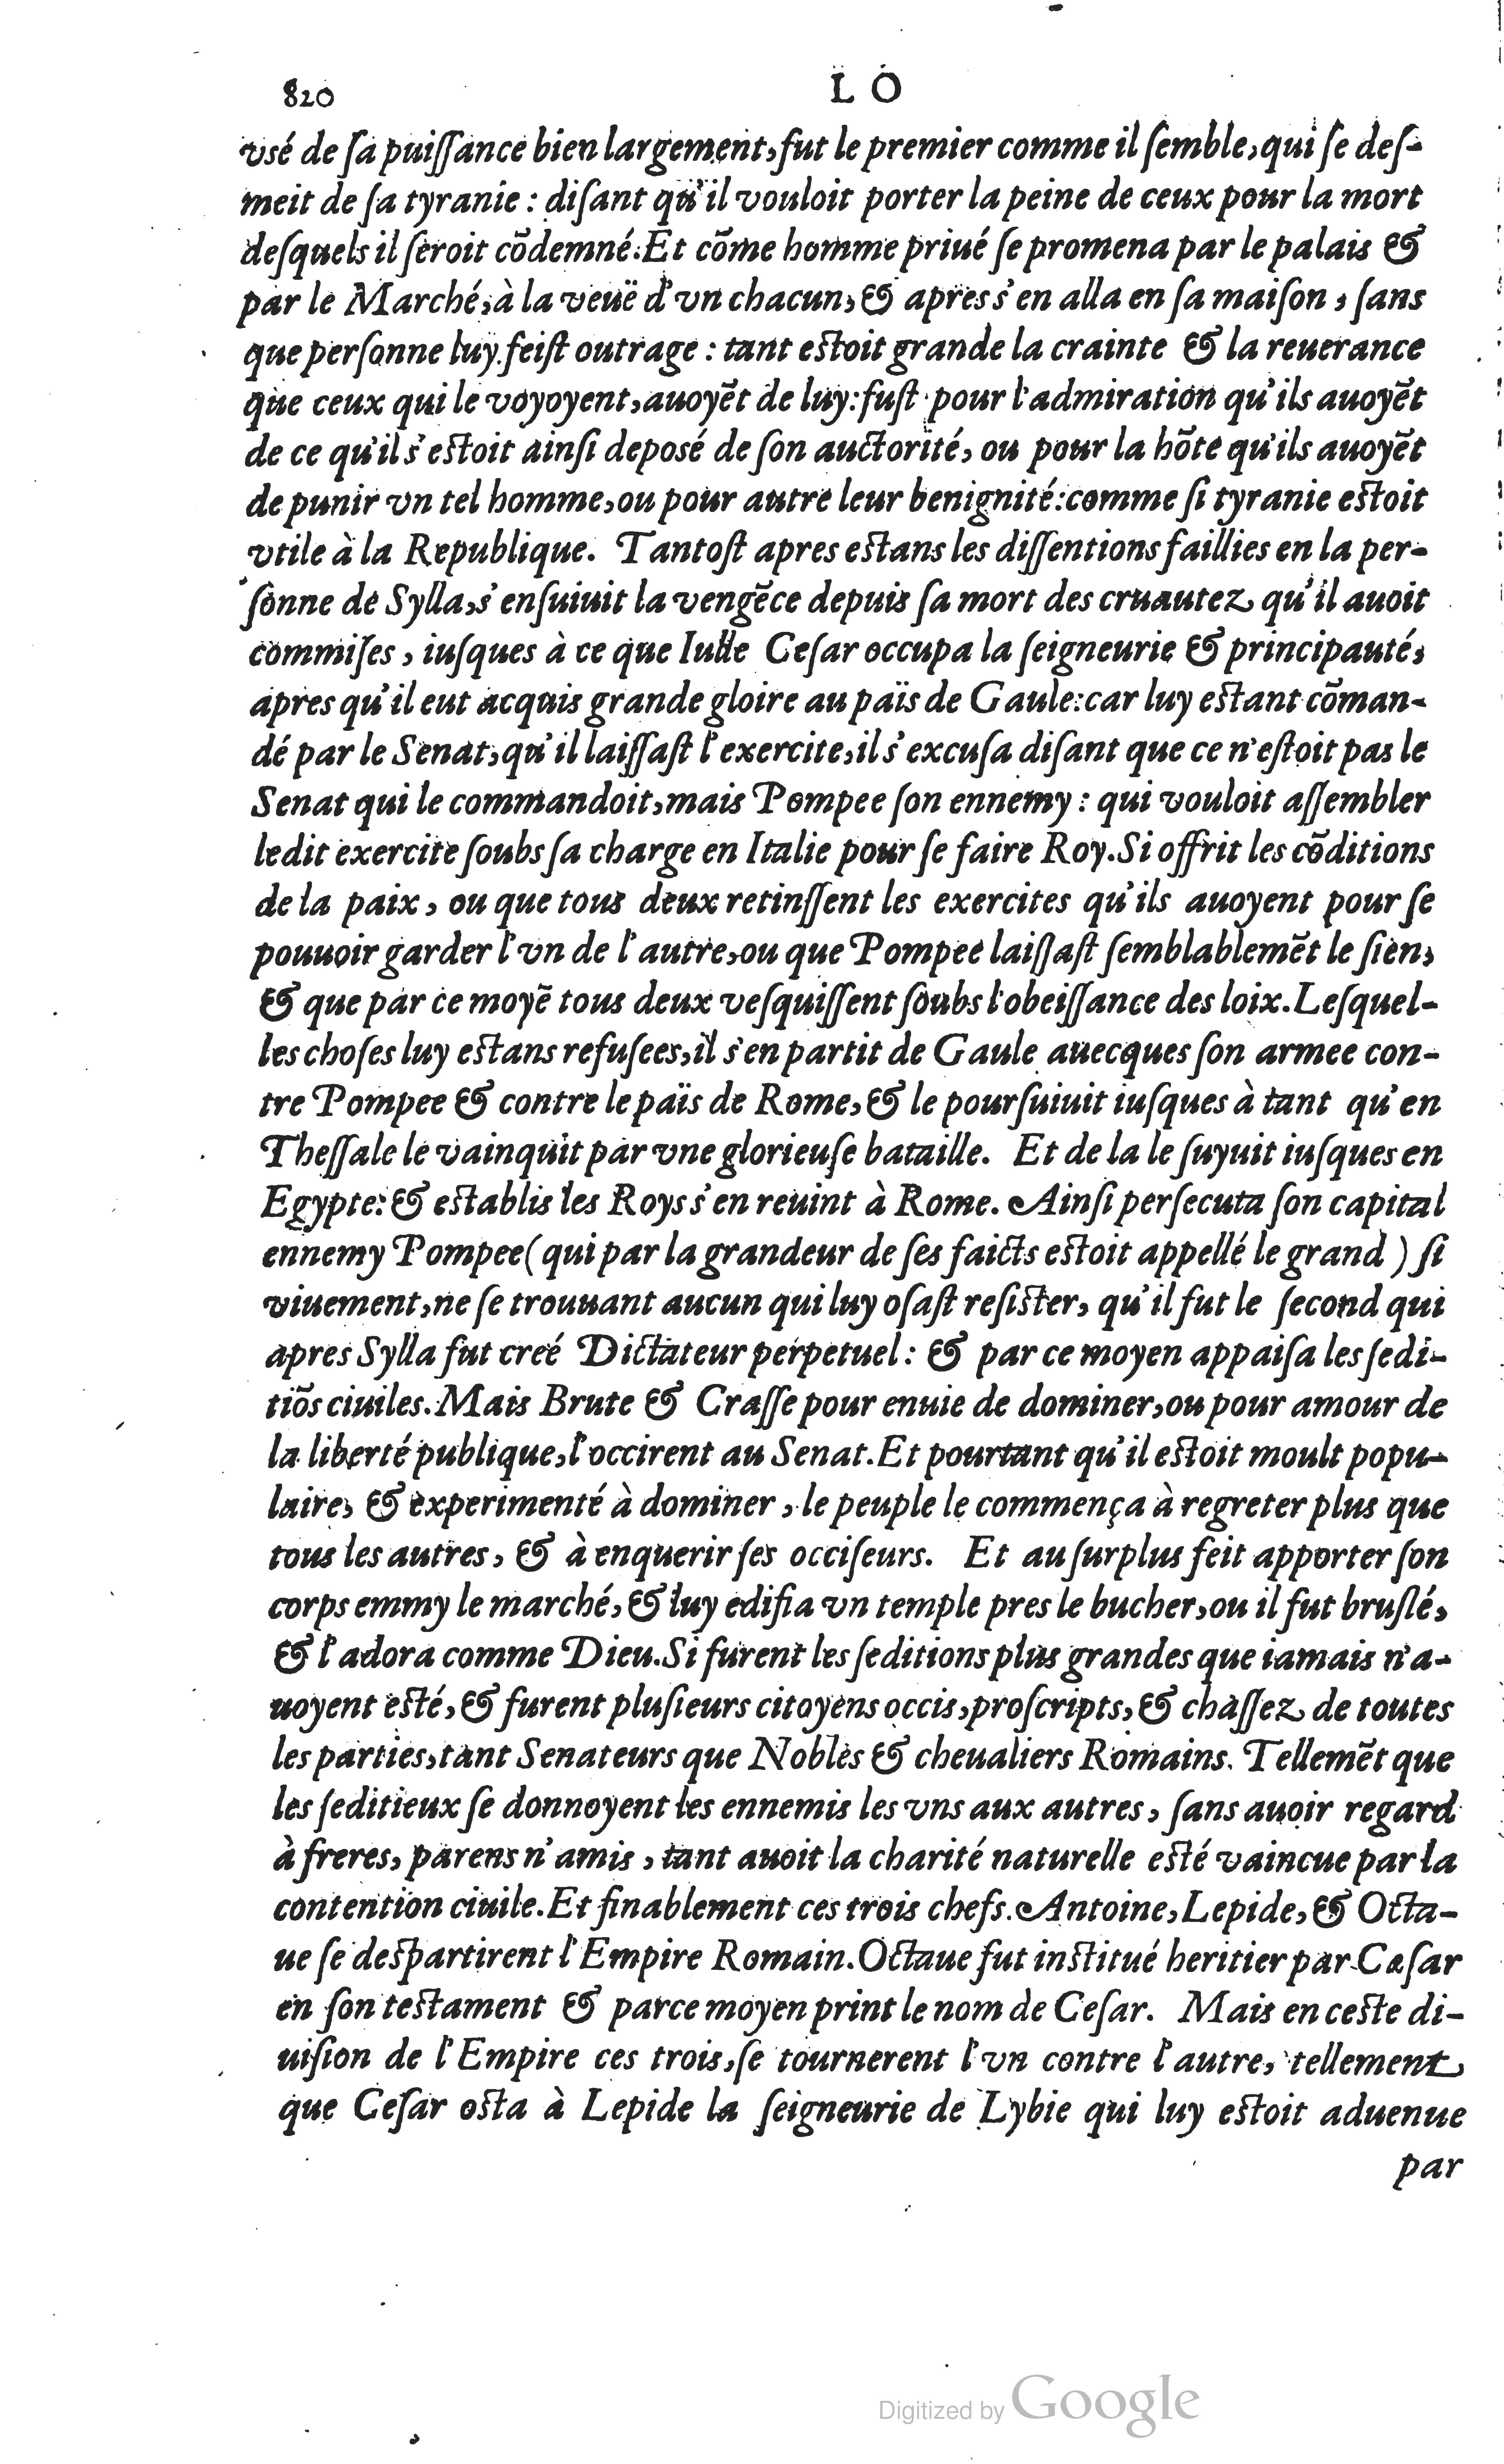 820
L O
vsé de ſa puiſſance bien largement, fut le premier comme il ſemble, qui ſe deſ-
meit de ſa tyranie : diſant qu'il vouloit porter la peine de ceux pour la mort
deſquels il ſeroit cõdemné. Et cõme homme priué ſe promena par le palais &
par le Marché, à la veuë d'vn chacun, & apres s'en alla en ſa maiſon, ſans
que perſonne luy feiſt outrage : tant eſtoit grande la crainte & la reuerance
que ceux qui le voyoyent, auoyẽt de luy: fuſt pour l'admiration qu'ils auoyẽt
de ce qu'il s'eſtoit ainſi deposé de ſon auctorité, ou pour la hõte qu'ils auoyẽt
de punir vn tel homme, ou pour autre leur benignité: comme ſi tyranie eſtoit
vtile à la Republique. Tantoſt apres eſtans les diſſentions faillies en la per-
ſonne de Sylla, s'enſuiuit la vengẽce depuis ſa mort des cruautez qu'il auoit
commiſes, iuſques à ce que Iulle Ceſar occupa la ſeigneurie & principauté,
apres qu'il eut acquis grande gloire au païs de Gaule: car luy eſtant cõman-
dé par le Senat, qu'il laiſſaſt l'exercite, il s'excuſa diſant que ce n'eſtoit pas le
Senat qui le commandoit, mais Pompee ſon ennemy : qui vouloit aſſembler
ledit exercite ſoubs ſa charge en Italie pour ſe faire Roy. Si offrit les cõditions
de la paix, ou que tous deux retinſſent les exercites qu'ils auoyent pour ſe
pouuoir garder l'vn de l'autre, ou que Pompee laiſſaſt ſemblablemẽt le ſien,
& que par ce moyẽ tous deux veſquiſſent ſoubs l'obeiſſance des loix. Leſquel-
les choſes luy eſtans refuſees, il s'en partit de Gaule auecques ſon armee con-
tre Pompee & contre le païs de Rome, & le pourſuiuit iuſques à tant qu'en
Theſſale le vainquit par vne glorieuſe bataille. Et de la le ſuyuit iuſques en
Egypte: & eſtablis les Roys s'en reuint à Rome. Ainſi perſecuta ſon capital
ennemy Pompee (qui par la grandeur de ſes faicts eſtoit appellé le grand ) ſi
viuement, ne ſe trouuant aucun qui luy oſaſt reſiſter, qu'il fut le ſecond qui
apres Sylla fut creé Dictateur perpetuel : & par ce moyen appaiſa les ſedi-
tiõs ciuiles. Mais Brute & Craſſe pour enuie de dominer, ou pour amour de
la liberté publique, l'occirent au Senat. Et pourtant qu'il eſtoit moult popu-
laire, & experimenté à dominer, le peuple le commença à regreter plus que
tous les autres, & à enquerir ſes occiſeurs. Et au ſurplus feit apporter ſon
corps emmy le marché, & luy edifia vn temple pres le bucher, ou il fut bruſlé,
& l'adora comme Dieu. Si furent les ſeditions plus grandes que iamais n'a-
uoyent eſté, & furent pluſieurs citoyens occis, proſcripts, & chaſſez de toutes
les parties, tant Senateurs que Nobles & cheualiers Romains. Tellemẽt que
les ſeditieux ſe donnoyent les ennemis les vns aux autres, ſans auoir regard
à freres, parens n'amis, tant auoit la charité naturelle eſté vaincue par la
contention ciuile. Et finablement ces trois chefs. Antoine, Lepide, & Octa-
ue ſe deſpartirent l'Empire Romain. Octaue fut inſtitué heritier par Cæſar
en ſon teſtament & parce moyen print le nom de Ceſar. Mais en ceſte di-
uiſion de l'Empire ces trois, ſe tournerent l'vn contre l'autre, tellement
que Ceſar oſta à Lepide la ſeigneurie de Lybie qui luy eſtoit aduenue
par
Digitized by Google